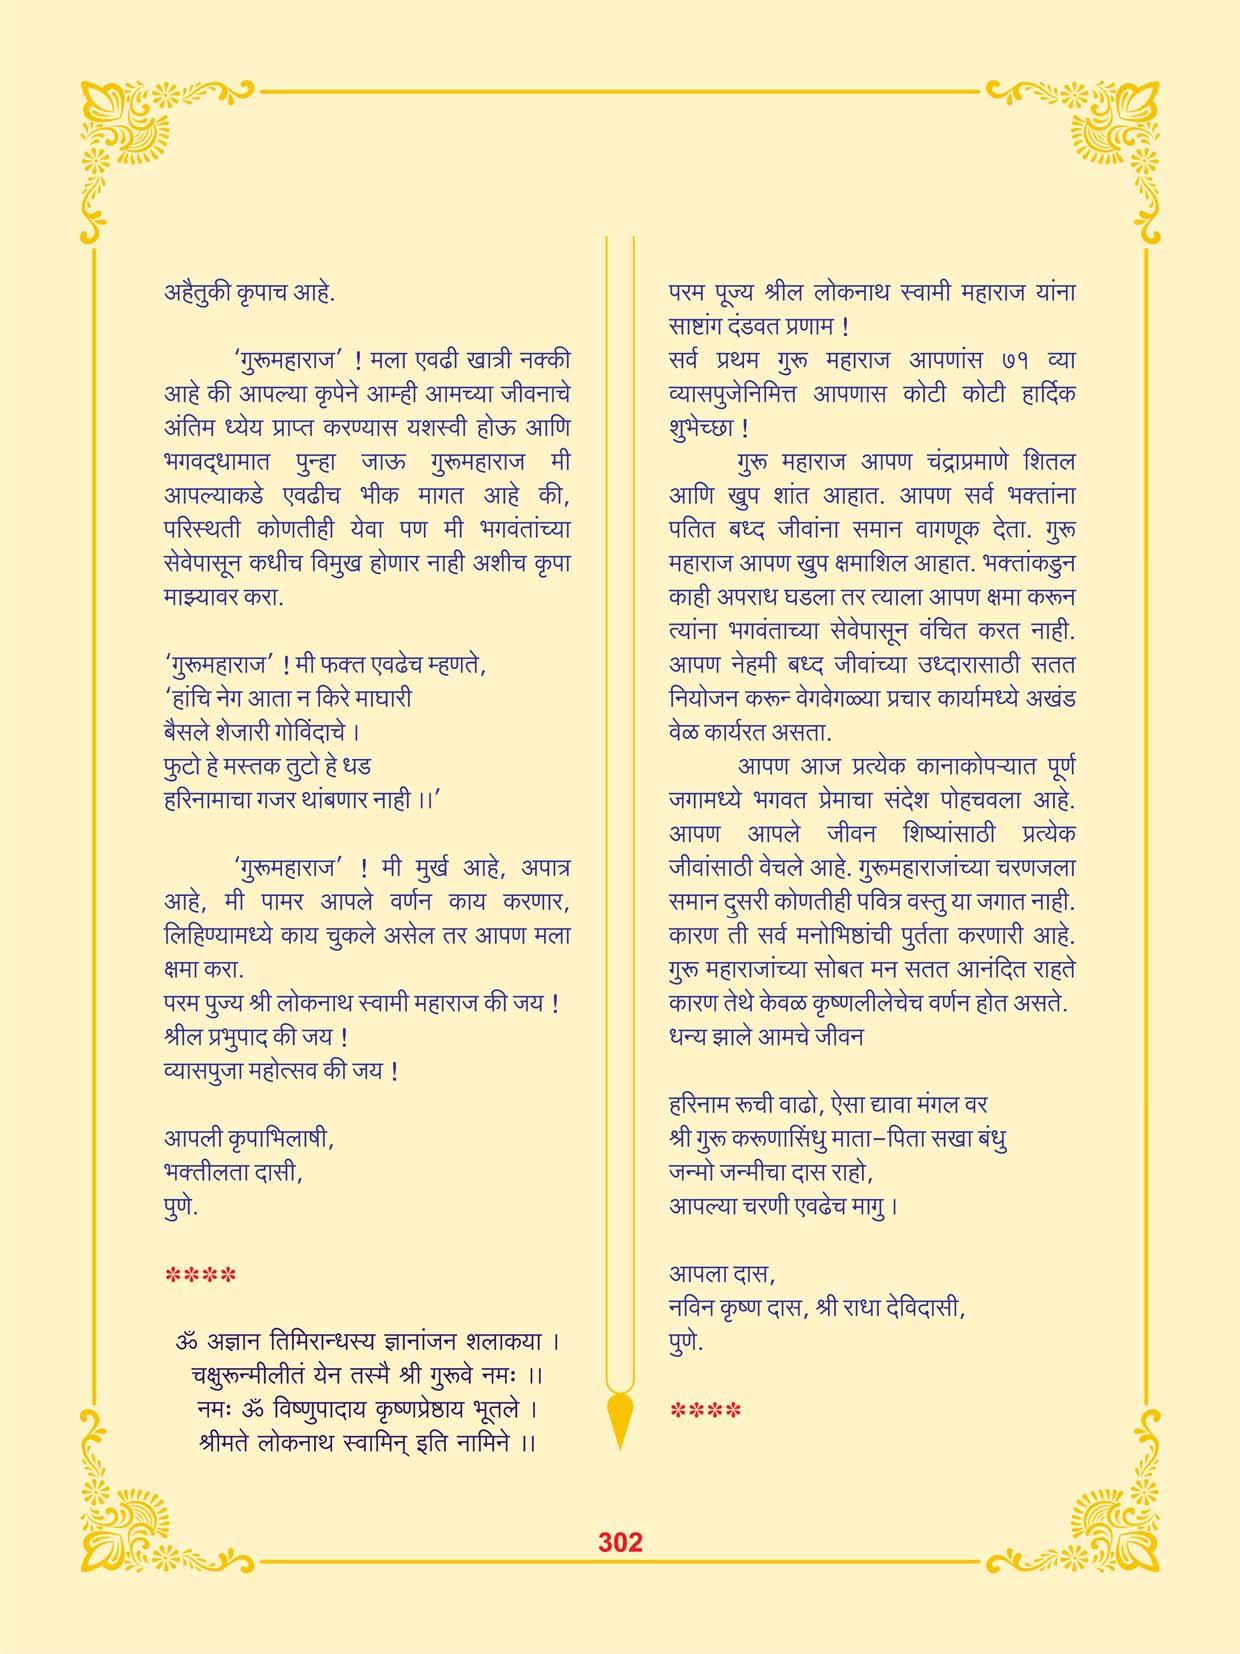 अहैतुकी कृपाच आहे.
‘गुरूमहाराज’ ! मला एवढी खात्री नक्की
आहे की आपल्या कृपेने आम्ही आमच्या जीवनाचे
अंतिम ध्येय प्राप्त करण्यास यशस्वी होऊ आणि
भगवद्धामात पुन्हा जाऊ गुरूमहाराज मी
आपल्याकडे एवढीच भीक मागत आहे की,
परिस्थती कोणतीही येवा पण मी भगवंतांच्या
सेवेपासून कधीच विमुख होणार नाही अशीच कृपा
माझ्यावर करा.
‘गुरूमहाराज’ ! मी फक्त एवढेच म्हणते,
‘हांचि नेग आता न किरे माघारी
बैसले शेजारी गोविंदाचे ।
फुटो हे मस्तक तुटो हे धड
हरिनामाचा गजर थांबणार नाही ।।’
‘गुरूमहाराज’ ! मी मुर्ख आहे, अपात्र
आहे, मी पामर आपले वर्णन काय करणार,
लिहिण्यामध्ये काय चुकले असेल तर आपण मला
क्षमा करा.
परम पुज्य श्री लोकनाथ स्वामी महाराज की जय !
श्रील प्रभुपाद की जय !
व्यासपुजा महोत्सव की जय !
आपली कृपाभिलाषी,
भक्तीलता दासी,
पुणे.
****
ॐ अज्ञान तिमिरान्धस्य ज्ञानांजन शलाकया ।
चक्षुरून्मीलीतं येन तस्मै श्री गुरूवे नमः ।।
नमः ॐ विष्णुपादाय कृष्णप्रेष्ठाय भूतले ।
श्रीमते लोकनाथ स्वामिन् इति नामिने ।।
परम पूज्य श्रील लोकनाथ स्वामी महाराज यांना
साष्टांग दंडवत प्रणाम !
सर्व प्रथम गुरू महाराज आपणांस ७१ व्या
व्यासपुजेनिमित्त आपणास कोटी कोटी हार्दिक
शुभेच्छा !
गुरू महाराज आपण चंद्राप्रमाणे शितल
आणि खुप शांत आहात. आपण सर्व भक्तांना
पतित बध्द जीवांना समान वागणूक देता. गुरू
महाराज आपण खुप क्षमाशिल आहात. भक्तांकडुन
काही अपराध घडला तर त्याला आपण क्षमा करून
त्यांना भगवंताच्या सेवेपासून वंचित करत नाही.
आपण नेहमी बध्द जीवांच्या उध्दारासाठी सतत
नियोजन करून्‍ वेगवेगळ्या प्रचार कार्यामध्ये अखंड
वेळ कार्यरत असता.
आपण आज प्रत्येक कानाकोपऱ्यात पूर्ण
जगामध्ये भगवत प्रेमाचा संदेश पोहचवला आहे.
आपण आपले जीवन शिष्यांसाठी प्रत्येक
जीवांसाठी वेचले आहे. गुरूमहाराजांच्या चरणजला
समान दुसरी कोणतीही पवित्र वस्तु या जगात नाही.
कारण ती सर्व मनोभिष्ठांची पुर्तता करणारी आहे.
गुरू महाराजांच्या सोबत मन सतत आनंदित राहते
कारण तेथे केवळ कृष्णलीलेचेच वर्णन होत असते.
धन्य झाले आमचे जीवन
हरिनाम रूची वाढो, ऐसा द्यावा मंगल वर
श्री गुरू करूणासिंधु माता-पिता सखा बंधु
जन्मो जन्मीचा दास राहो,
आपल्या चरणी एवढेच मागु ।
आपला दास,
नविन कृष्ण दास, श्री राधा देविदासी,
पुणे.
****
302